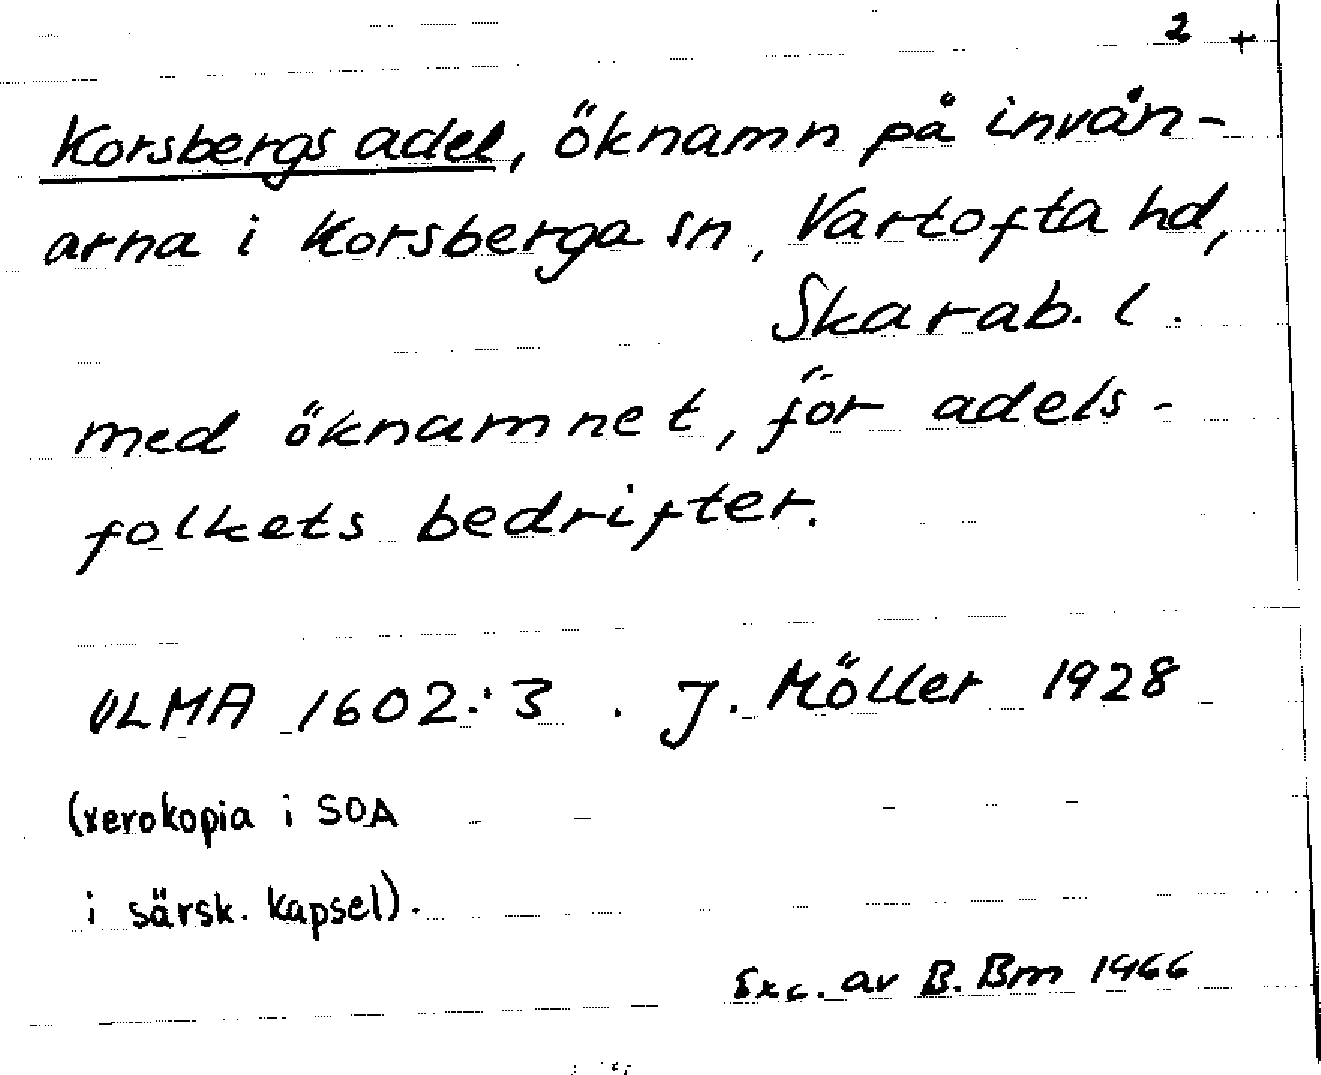 2 +
Korsbergs adel, öknamn på invån-
arna i Korsberga sn, Vartofta hd,
Skarab. l.
med öknamnet, för adels-
folkets bedrifter.
ULMA 1602:3. J. Möller 1928
(xerokopia i SOA
i särsk. kapsel).
Exc. av B. Bm 1966